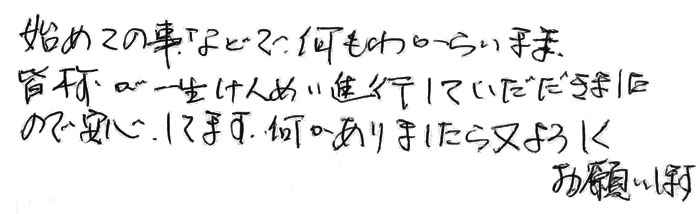 始めての事などで何もわからいまま
皆様が一生けんめい進行していただきました
ので安心してます。何かありましたら又よろしく
お願いします